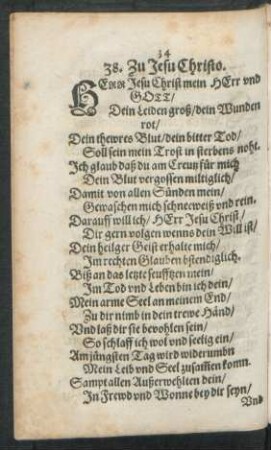 34
38. Zu Jesu Christo.
HErr Jesu Christ mein HErr vnd
GOTT/
Dein Leiden groß/dein Wunden
rot/
Dein thewres Blut/dein bitter Tod/
Soll sein mein Trost in sterbens noht.
Ich glaub daß du am Creutz für mich
Dein Blut vergossen miltiglich/
Damit von allen Sünden mein/
Gewaschen mich schneeweiß vnd rein.
Darauff will ich/ HErr Jesu Christ/
Dir gern volgen wenns dein Will ist/
Dein heilger Geist erhalte mich/
Im rechten Glauben bstendiglich.
Biß an das letzte seufftzen mein/
Im Tod vnd Leben bin ich dein/
Mein arme Seel an meinem End/
Zu dir nimb in dein trewe Händ/
Vnd laß dir sie bevohlen sein/
So schlaff ich wol vnd seelig ein/
Am jüngsten Tag wird widerumbn
Mein Leib vnd Seel zusam̃en komn.
Sampt allen Außerwehlten dein/
In Frewd vnd Wonne bey dir seyn/
Vnd